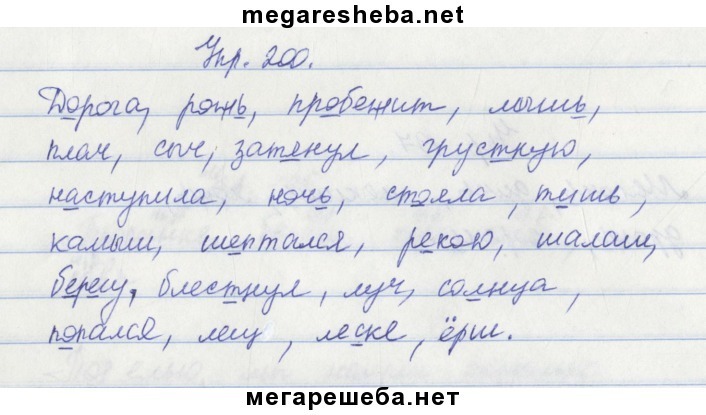 megaresheba.net
Упр. 200.
Дорога, рожь, пробежит, мышь,
плач, сыч, затянул, грустную,
наступила, ночь, стояла, тишь,
камыш, шептался, рекою, шалаш,
берегу, блестнул, луч, солнца,
попался, лещ, леске, ёрш.
мегарешеба.нет